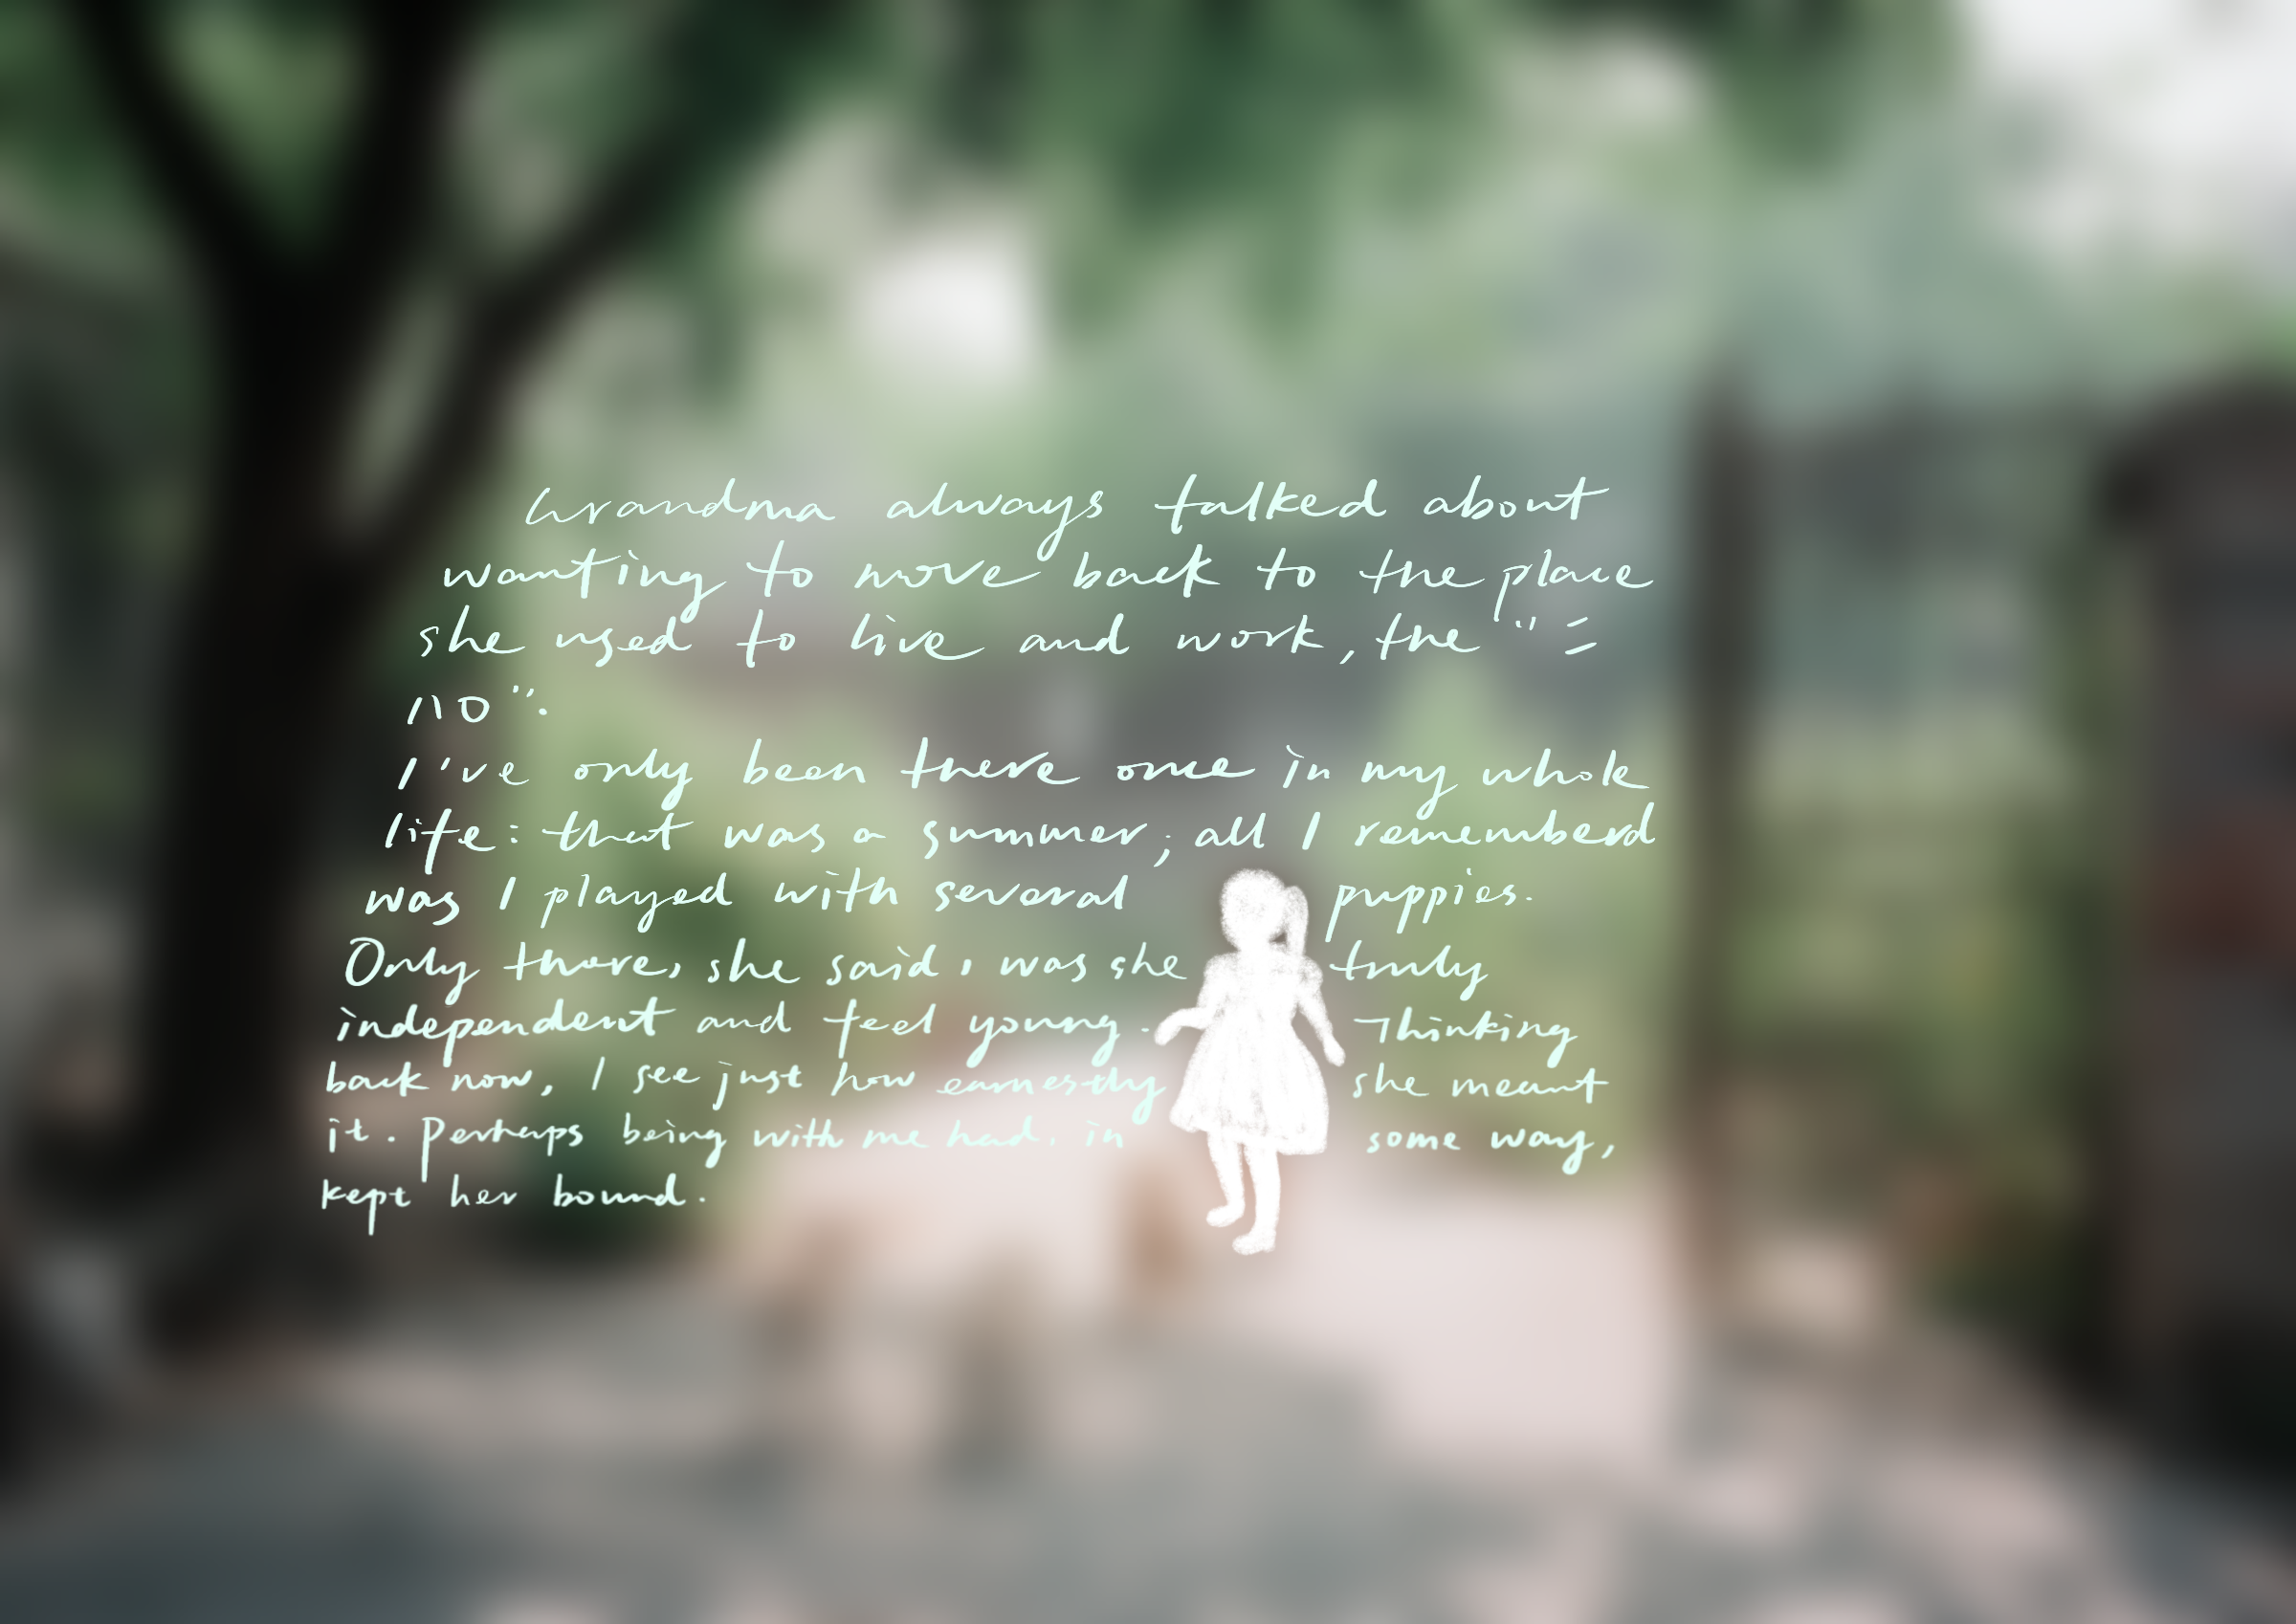 Grandma always talked about
wanting to move back to the place
she used to live and work, the "二
八〇".
I've only been there once in my whole
life: that was a summer; all I rememberd
was I played with several puppies.
Only there, she said, was she truly
independent and feel young. Thinking
back now, I see just how earnestly she meant
it. Perhaps being with me had, in some way,
kept her bound.